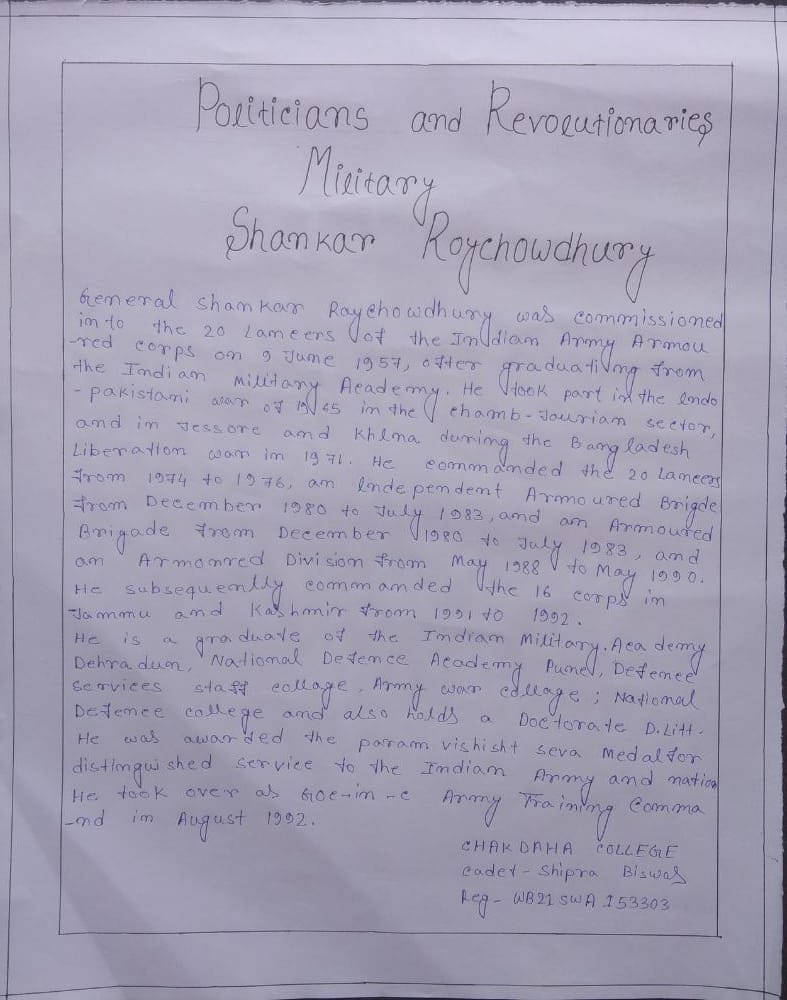 Politicians and Revolutionaries
Military
Shankar Roychowdhury
General Shankar Roychowdhury was commissioned
in to the 20 Lancers of the Indian Army Armou
-red corps on 9 June 1957, after graduating from
the Indian Military Academy. He took part in the Indo
- pakistani war of 1965 in the chamb-Jourian sector,
and in Jessore and Khlna during the Bangladesh
Liberation war in 1971. He commanded the 20 Lancers
from 1974 to 1976, an Independent Armoured Brigde
from December 1980 to July 1983, and an Armoured
Brigade from December 1980 to July 1983, and
an Armonred Division from May 1988 to May 1990.
He subsequently commanded the 16 corps in
Jammu and Kashmir from 1991 to 1992.
He is a graduate of the Indian Military. Academy
Dehradun, National Defence Academy Pune, Defence
services staff collage, Army war collage; National
Defence college and also holds a Doctorate D.Litt.
He was awarded the param vishisht seva Medal for
distinguished service to the Indian Army and nation
He took over as GOC-in-c Army Training Comma
-nd in August 1992.
CHAKDAHA COLLEGE
cadet - Shipra Biswas
Reg - WB21SWA153303